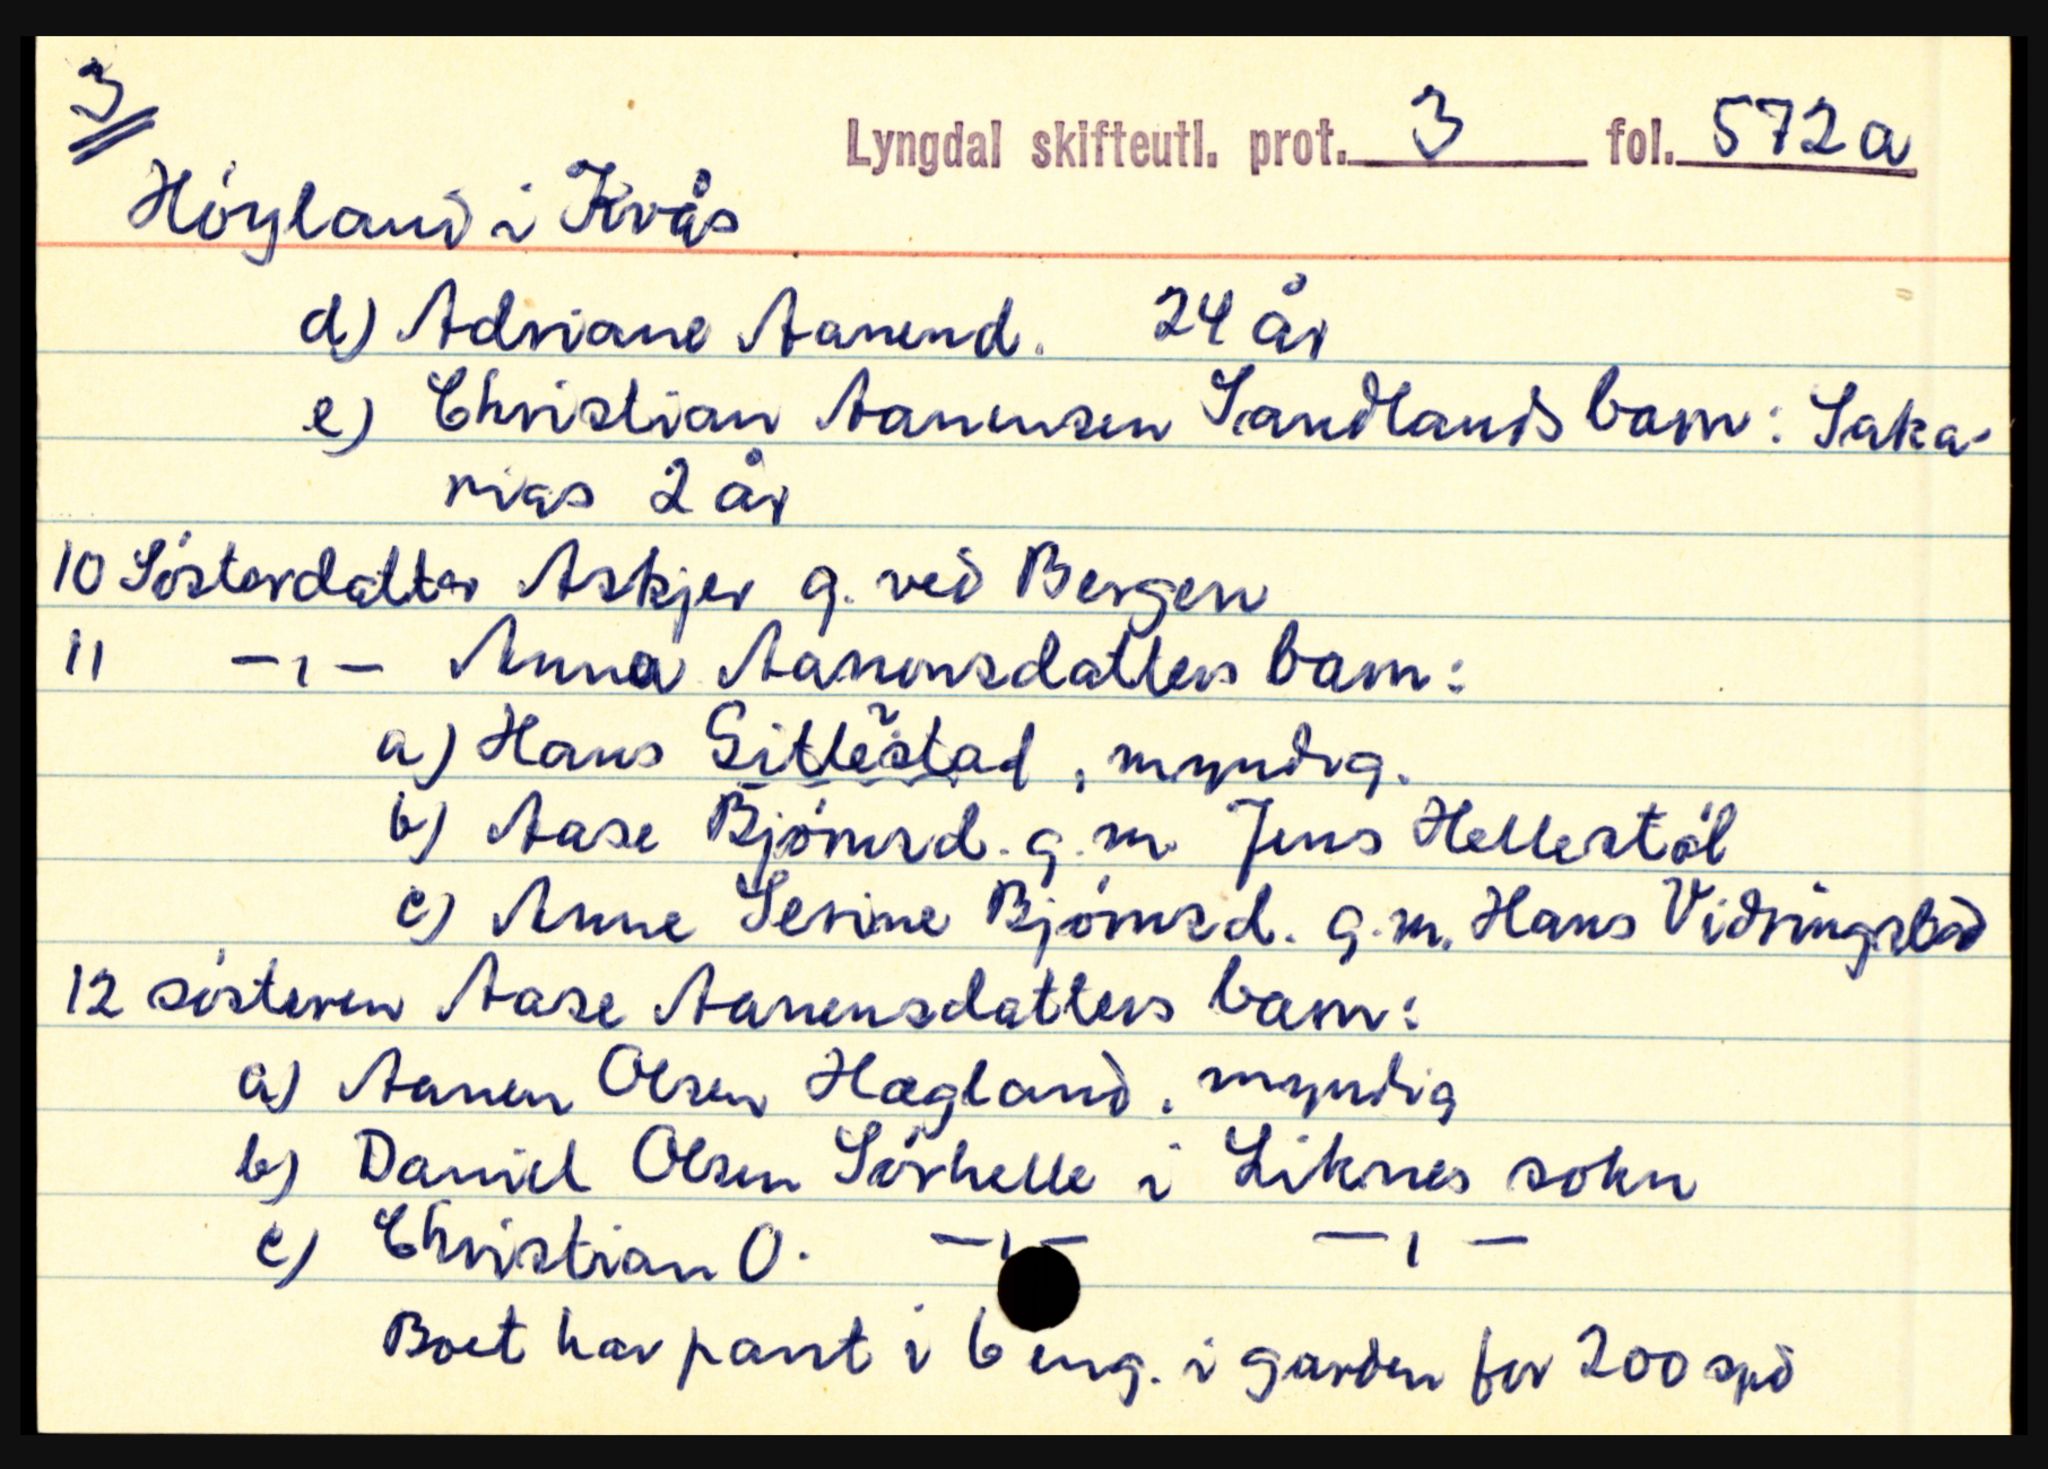 3
Lyngdal skifteutl. prot. 3 fol. 572a
Höyland i Kvås
d) Adriane Aanend. 24 år
e) Christian Aanensen Sandlands barn: Saka-
rias 2 år
10 Sösterdatter Askjer g. ved Bergen
11 -"- Anna Aanensdatters barn:
a) Hans Gitlestad, myndig.
b) Aase Björnsd. g.m. Jens Hellestöl
c) Anne Serine Björnsd. g.m. Hans Vidringstad
12 sösteren Aase Aanensdatters barn:
a) Aanen Olsen Hægland, myndig
b) Daniel Olsen Sörhelle i Liknes sokn
c) Christian O. -"- -"-
Boet har pant i 6 eng. i garden for 200 spd